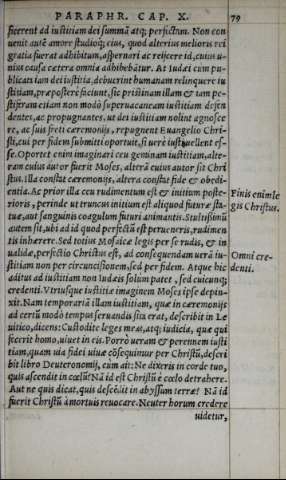 PARAPHR. CAP. X. 79
ficerent ad iustitiam dei summã atq; perfectam. Non con
uenit autẽ amore studioq; eius, quod alterius melioris rei
gratia fuerat adhibitum, aspernari ac reijcere id, cuius u-
nius causa cætera omnia adhibebãtur. At Iudæi cum pu-
blicata iam dei iustitia, debuerint humanam relinquere iu
stitiam, præpostere faciunt, sic pristinam illam & tam pe-
stiferam etiam non modò superuacaneam iustitiam defen
dentes, ac propugnantes, ut dei iustitiam nolint agnosce
re, ac suis freti cæremonijs, repugnent Euangelio Chri-
sti, cui per fidem submitti oportuit, si uerè iusti uellent es-
se. Oportet enim imaginari ceu geminam iustitiam, alte-
ram cuius autor fuerit Moses, alterã cuius autor sit Chri
stus. Illa constat cæremonijs, altera constat fide & obedi-
entia. Ac prior illa ceu rudimentum est & initium poste-
rioris, perinde ut truncus initium est aliquod futuræ sta-
tuæ, aut sanguinis coagulum futuri animantis. Stultissimũ
autem sit, ubi ad id quod perfectũ est perueneris, rudimen
tis inhærere. Sed totius Mosaicæ legis per se rudis, & in
ualidæ, perfectio Christus est, ad consequendam uerã iu-
stitiam non per circuncisionem, sed per fidem. Atque hic
aditus ad iustitiam non Iudæis solum patet, sed cuicunq;
credenti. Vtriusque iustitiæ imaginem Moses ipse depin-
xit. Nam temporariã illam iustitiam, quæ in cæremonijs
ad certũ modò tempus seruandis sita erat, describit in Le
uitico, dicens: Custodite leges meas, atq; iudicia, quæ qui
fecerit homo, uiuet in eis. Porro ueram & perennem iusti
tiam, quam uia fidei uiuæ cõsequimur per Christũ, descri
bit libro Deuteronomij, cum ait: Ne dixeris in corde tuo,
quis ascendit in cœlũ? Nã id est Christũ è cœlo detrahere.
Aut ne quis dicat, quis descẽdit in abyssum terræ? Nã id
fuerit Christũ à mortuis reuocare. Neuter horum credere
uidetur,
Finis enim le
gis Christus.
Omni cre-
denti.